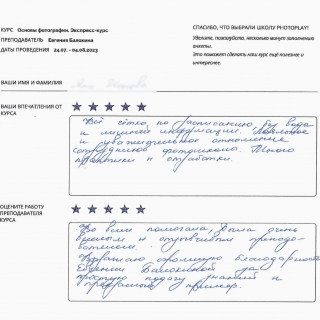 КУРС Основы фотографии. Экспресс-курс
ПРЕПОДАВАТЕЛЬ Евгения Балакина
ДАТЫ ПРОВЕДЕНИЯ 24.07. - 04.08.2023
СПАСИБО, ЧТО ВЫБРАЛИ ШКОЛУ PHOTOPLAY!
Уделите, пожалуйста, несколько минут заполнению анкеты.
Это поможет сделать наш курс ещё полезнее и интереснее.
ВАШИ ИМЯ И ФАМИЛИЯ
ВАШИ ВПЕЧАТЛЕНИЯ ОТ КУРСА
Всё чётко, по расписанию, без воды
и лишней информации.
и уважительное отношение
сотрудников фотошколы. Много
практики и отработки.
ОЦЕНИТЕ РАБОТУ ПРЕПОДАВАТЕЛЯ КУРСА
Во всём помогала, была очень
и отзывчивым препода-
вателем.
Выражаю огромную благодарность
Евгении Балакиной за
простую подачу знаний и
пример.